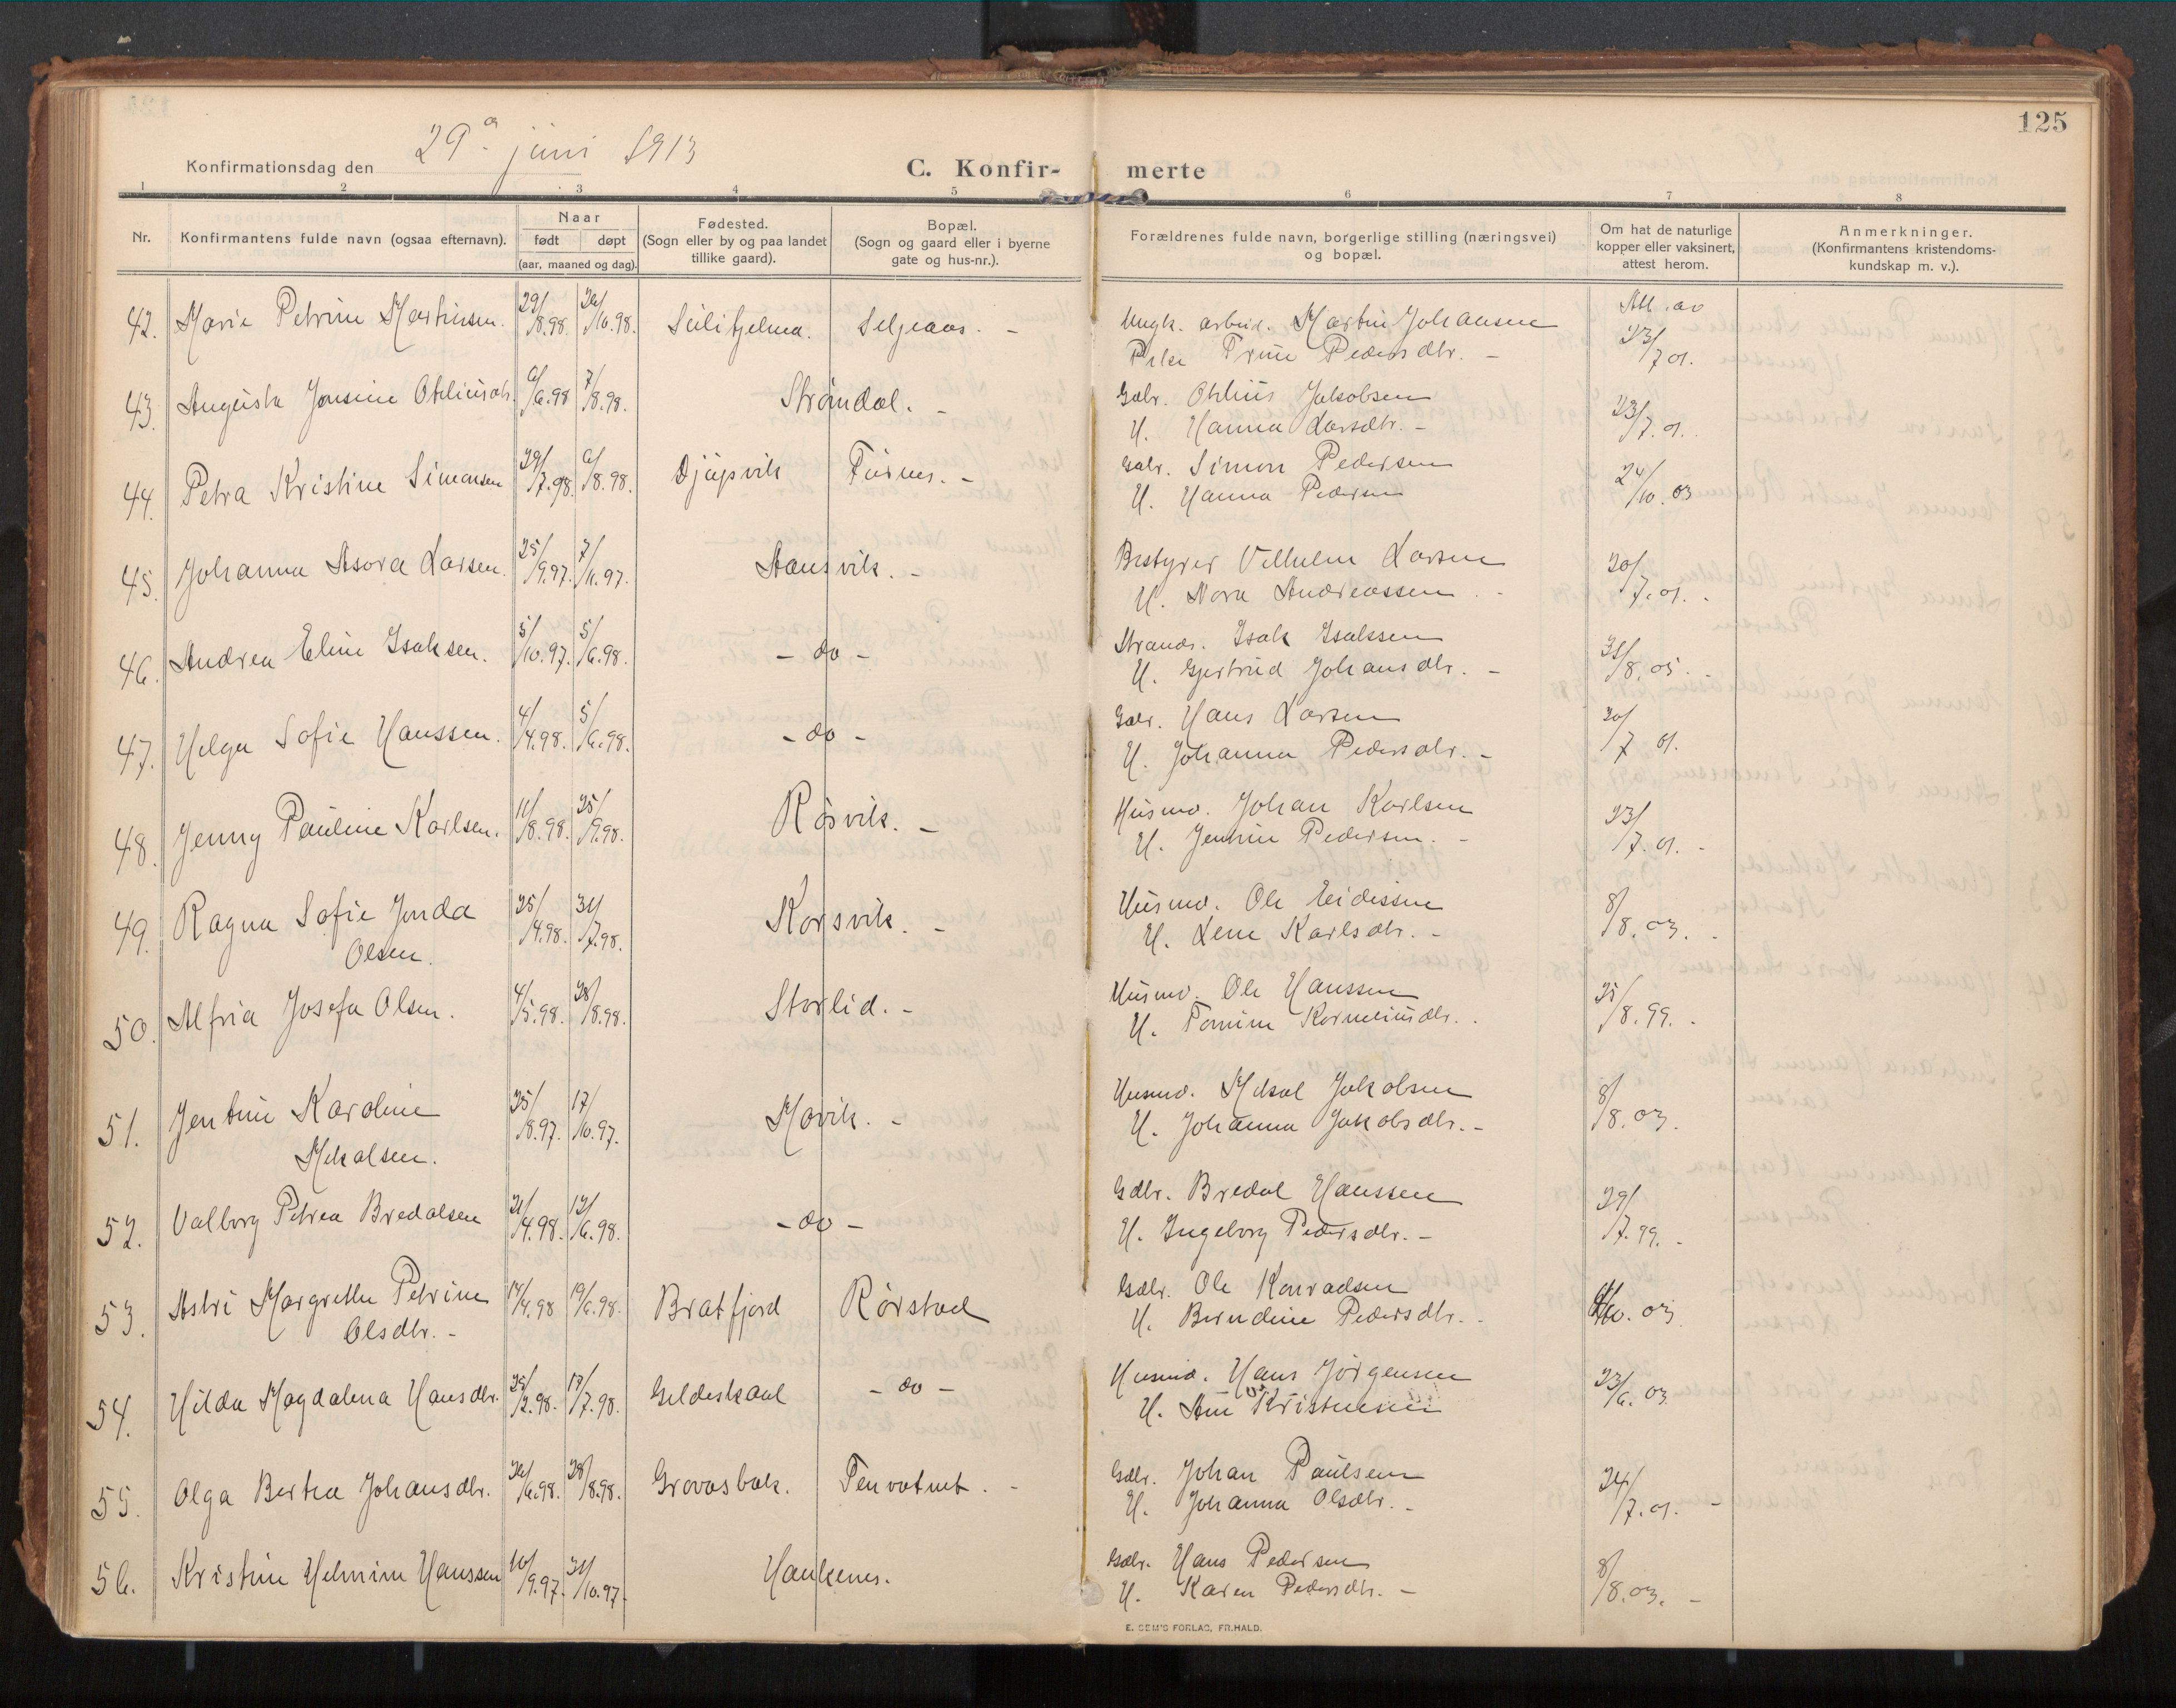 125
29de juni 1913
Konfirmationsdag den
C. Konfir- merte
1 2 3 4 5 6 7 8
Nr.
Konfirmantens fulde navn (ogsaa efternavn).
Naar
født døpt
(aar, maaned og dag).
Fødested.
(Sogn eller by og paa landet
tillike gaard).
Bopæl.
(Sogn og gaard eller i byerne
gate og hus-nr.).
Forældrenes fulde navn, borgerlige stilling (næringsvei)
og bopæl.
Om hat de naturlige
kopper eller vaksinert,
attest herom.
Anmerkninger.
(Konfirmantens kristendoms-
kundskap m. v.).
42. Marie Petrine Martinsen. 29/8.98. 26/10.98. Sulitjelma. Seljeaas. - Ungk. arbeid. Martin Johansen Att. av
Pike Trine Pedersdtr. - 23/7 01.
43. Augusta Jonsine Oteliusdtr. 6/6.98 7/8.98. Strømdal. - Gdbr. Othlius Jakobsen
H. Hanna Larsdtr. - 23/7.01.
44. Petra Kristine Simonsen 29/7.98. 6/8.98. Djupvik Furnes. - Gdbr. Simon Pedersen
H. Hanna Pedersen 24/10.03
45. Johanna Asora Larsen. 25/9.97. 7/11.97. Stansvik. - Bestyrer Vilhelm Larsen
H. Nora Andreassen. - 20/7.01. -
46. Andrea Eline Isaksen. 5/10.97. 5/6.98. - do - Strands. Isak Isakssen
H. Gjertrud Johansdtr. - 31/8.05. -
47. Helga Sofie Hanssen. 4/4.98. 5/6.98. - do - Gdbr. Hans Larsen
H. Johanna Pedersdtr. - 20/7 01.
48. Jenny Pauline Karlsen. 11/8.98. 25/9.98. Røsvik. - Husmd. Johan Karlsen
H. Jensine Pedersen. - 23/7.01. -
49. Ragna Sofie Jonda 25/4.98. 31/7.98. Korsvik. - Husmd. Ole Eidissen 8/8.03. -
Olsen. H. Lene Karlsdtr. -
50. Alfria Josefa Olsen. 4/5.98. 28/8.98. Storlid. - Husmd. Ole Hanssen
H. Tomine Korneliusdtr. - 25/8.99. -
51. Jentine Karoline 25/8.97. 17/10.97. Movik. - Husmd. Mikal Jakobsen 8/8.03.
Mikalsen. H. Johanna Jakobsdtr. -
52. Valborg Petrea Bredalsen 21/4.98. 12/6.98. - do - Gdbr. Bredal Hanssen
H. Ingeborg Pedersdtr. - 29/7.99. -
53. Astri Margrethe Petrine 14/4.98 19/6.98. Bratfjord Rørstad Gdbr. Ole Konradsen
Olsdtr. - H. Berndine Pedersdtr. - /10. 03
54. Hilda Magdalena Hansdtr. 25/2.98. 17/7.98. Gildeskaal - do - Husmd. Hans Jørgensen
H. Ane Kristensen 23/6. 03
55. Olga Bertea Johansdtr. 26/6.98. 28/8.98. Grovasbak. Tenvatnet. - Gdbr. Johan Paulsen
H. Johanna Olsdtr. - 24/7.01. -
56. Kristine Helmine Hanssen 10/9.97. 31/10.97. Haukenes. Gdbr. Hans Pedersen
H. Karen Pedersdtr. - 8/8.03. -
E. SEM'S FORLAG, FR.HALD.